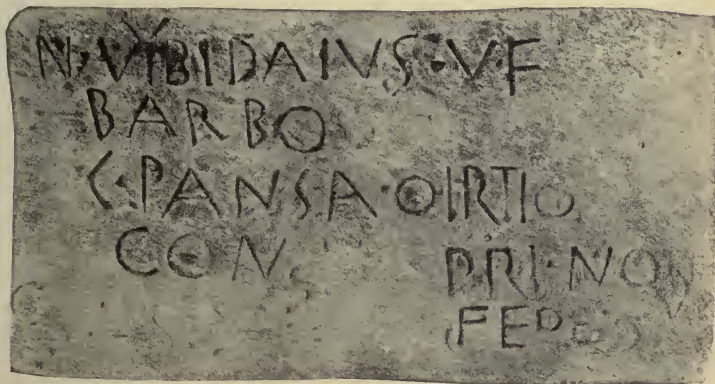 N·VIBIDAIVS·V·F
BARBO
C·PANSA·O·IRTIO
CONS PRI·NON